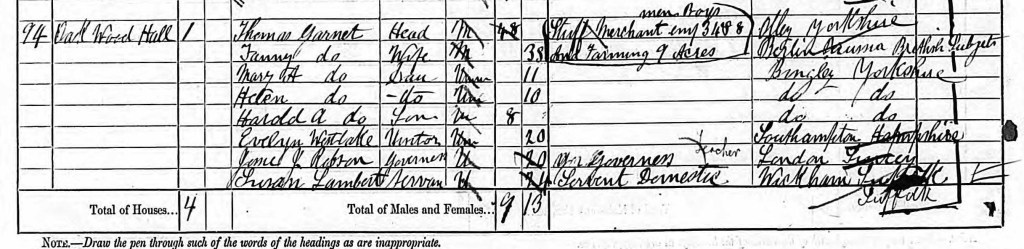 men Boys
94 Oak Wood Hall 1 Thomas Garnet Head M 48 Stuff Merchant emy 34 & 8 Otley Yorkshire
Fanney do Wife M 38 And Farming 9 Acres Berlin British Subjets
Mary A do Dau Unm 11 Bingley Yorkshire
Helen do - do Um 10 do do
Harold A do Son Um 8 do do
Evelyn Westlake Visitor Um 20 Southampton Hampshire
Robson Governess U 20 Governess Teacher London
Susan Lambert Servan U 24 Servent Domestic Wickham Suffolk
Suffolk
Total of Houses... 4 Total of Males and Females... 9 13
NOTE.—Draw the pen through such of the words of the headings as are inappropriate.